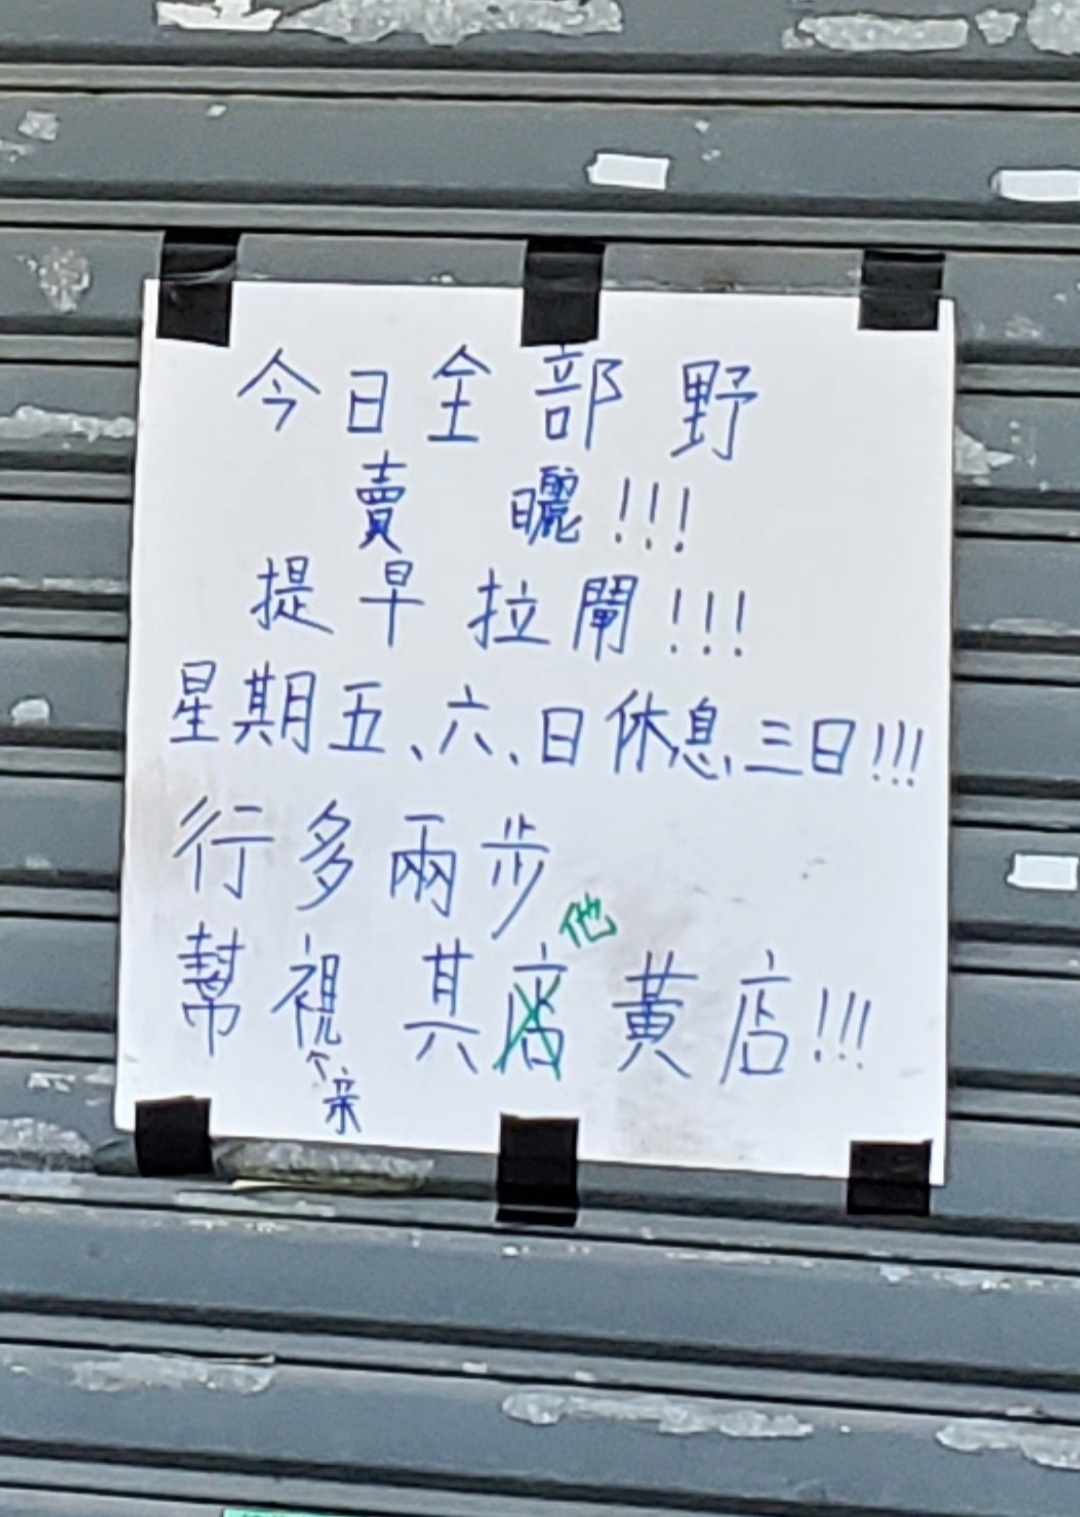 今日全部野
賣 曬!!!
提早拉閘!!!
星期五、六、日休息三日!!!
行多兩步
他
幫視 其店黃店!!!
↑亲